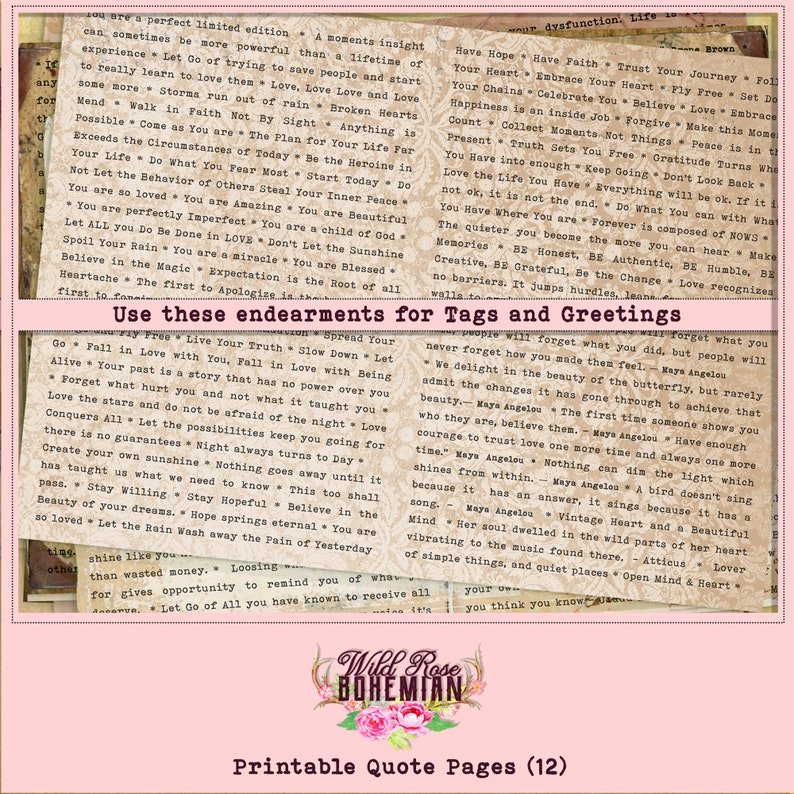 your dysfunction. Life is
times
Brown
You are a perfect limited edition * A moments insight
can, sometimes be more powerful than a lifetime of
experience * Let Go of trying to save people and start
to really learn to love them * Love, Love Love and Love
some more * Storms run out of rain * Broken Hearts
Mend * Walk in Faith Not By Sight * Anything is
Possible * Come as You are * The Plan for Your Life Far
Exceeds the Circumstances of Today * Be the Heroine in
Your Life * Do What You Fear Most * Start Today * Do
Not Let the Behavior of Others Steal Your Inner Peace *
You are so loved * You are Amazing * You are Beautiful
* You are perfectly Imperfect * You are a child of God *
Let ALL you Do Be Done in LOVE * Don't Let the Sunshine
Spoil Your Rain * You are a miracle * You are Blessed *
Believe in the Magic * Expectation is the Root of all
Heartache * The first to Apologize is the
first to
Have Hope * Have Faith * Trust Your Journey *
Your Heart * Embrace Your Heart * Fly Free * Set
Your Chains * Celebrate You * Believe * Love * Embrace
Happiness is an inside Job * Forgive * Make this
Count * Collect Moments Not Things * Peace is in
Present * Truth Sets You Free * Gratitude Turns
You Have into enough * Keep Going * Don't Look Back *
Love the Life You Have * Everything will be ok. If it
not ok, it is not the end. * Do What You Can with What
You Have Where You are * Forever is composed of NOWS *
The quieter you become the more you can hear * Make
Memories * BE Honest, BE Authentic, BE Humble, BE
Creative, BE Grateful, Be the Change * Love recognizes
no barriers. It jumps hurdles, leaps
walls to
Use these endearments for Tags and Greetings
and Fly Free * Live Your Truth * Slow Down * Let
Go * Fall in Love with You, Fall in Love with Being
Alive * Your past is a story that has no power over you
* Forget what hurt you and not what it taught you *
Love the stars and do not be afraid of the night * Love
Conquers All * Let the possibilities keep you going for
there is no guarantees * Night always turns to Day *
Create your own sunshine * Nothing goes away until it
has taught us what we need to know * This too shall
pass. * Stay Willing * Stay Hopeful * Believe in the
Beauty of your dreams. * Hope springs eternal * You are
so loved * Let the Rain Wash away the Pain of Yesterday
people will forget what you
people will forget what you did, but people will
never forget how you made them feel. — Maya Angelou
* We delight in the beauty of the butterfly, but rarely
admit the changes it has gone through to achieve that
beauty.— Maya Angelou * The first time someone shows you
who they are, believe them. — Maya Angelou * Have enough
courage to trust love one more time and always one more
time." Maya Angelou * Nothing can dim the light which
shines from within. — Maya Angelou * A bird doesn't sing
because it has an answer, it sings because it has a
song. - Maya Angelou * Vintage Heart and a Beautiful
Mind * Her soul dwelled in the wild parts of her heart
vibrating to the music found there. - Atticus * Lover
of simple things, and quiet places * Open Mind & Heart *
time.
shine like you
than wasted money. * Loosing
for gives opportunity to remind you of what
deserve. * Let Go of All you have known to receive all
your own
you think you know
Wild Rose
BOHEMIAN
Printable Quote Pages (12)